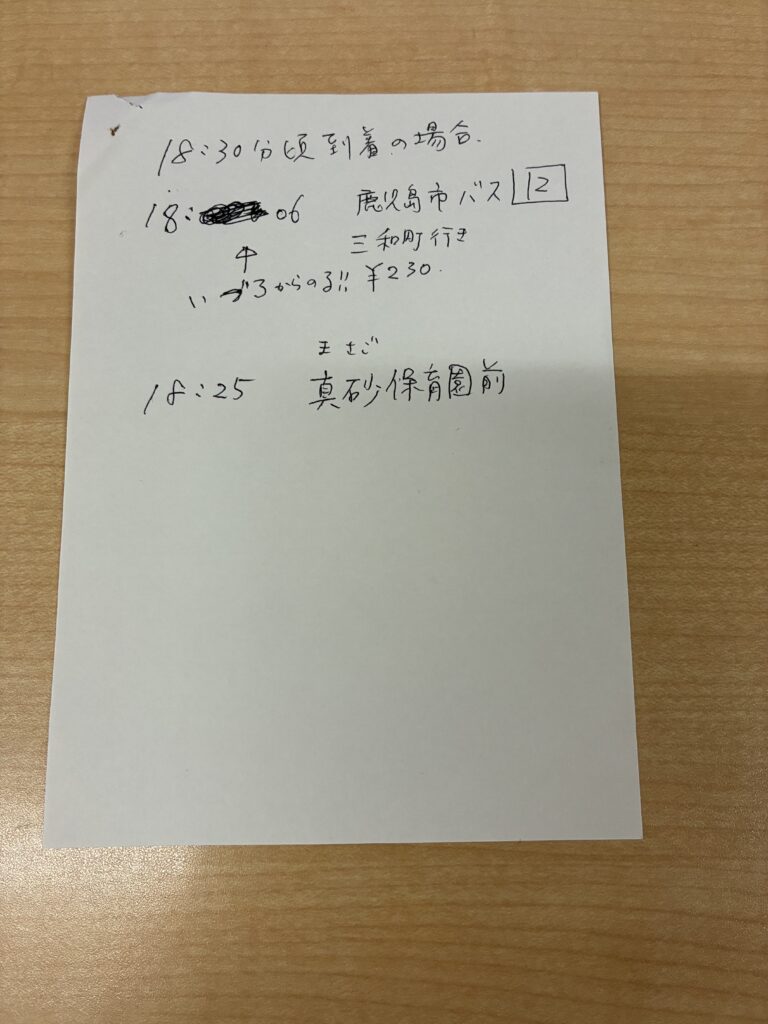 18:30分頃到着の場合.
18: 06 鹿児島市バス 12
三和町行き
↑
いづろからのる!! ¥230.
まさご
18:25 真砂保育園前